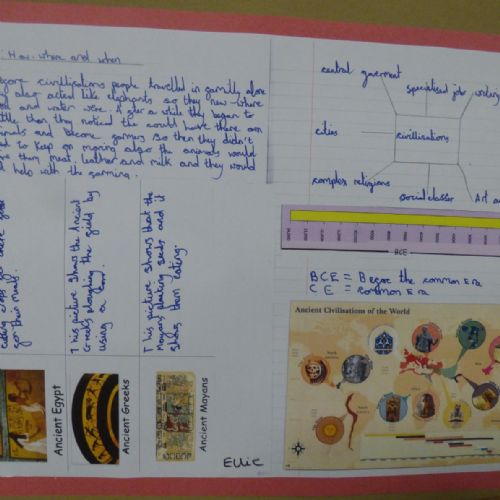 : How where and when
before civillisations people travelled in family alone
also acted like elephants so they new where
food and water were. After a while they began to
settle than they noticed the could have there own
animals and become farmers so then they didn't
need to keep on moving also the animals would
give them meat, leather and milk and they would
help with the farming.
central goverment
specialised job
writing
cities
civillisations
complex religions
social classes
Art
BCE
BCE = Before the common Era
CE = common Era
Ancient Civilisations of the World
for their meals.
This picture shows the Ancient
Greeks ploughing the field by
using a cow.
This picture shows that the
Mayans planting seeds and it
shows them eating.
Ancient Egypt
Ancient Greeks
Ancient Mayans
Ellie